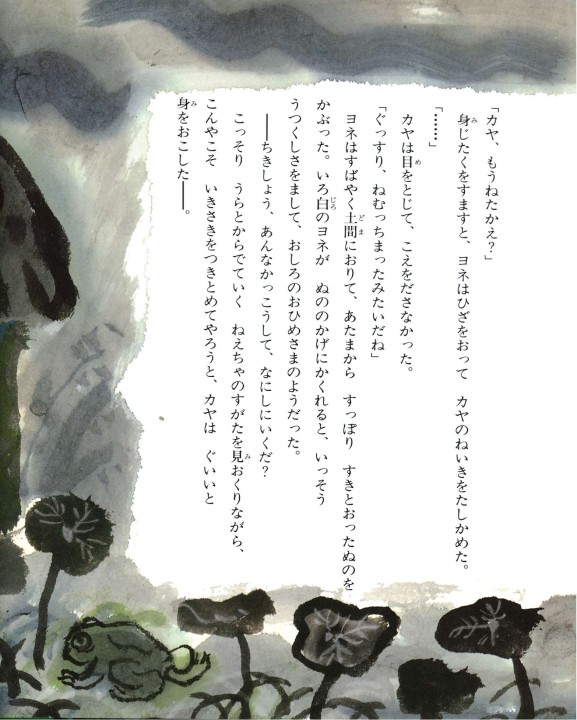 「カヤ、もうねたかえ？」
身じたくをすますと、ヨネはひざをおって　カヤのねいきをたしかめた。
「……」
カヤは目をとじて、こえをださなかった。
「ぐっすり、ねむっちまったみたいだね」
ヨネはすばやく土間におりて、あたまから　すっぽり　すきとおったぬのを
かぶった。いろ白のヨネが　ぬののかげにかくれると、いっそう
うつくしさをまして、おしろのおひめさまのようだった。
――ちきしょう、あんなかっこうして、なにしにいくだ？
こっそり　うらとからでていく　ねえちゃのすがたを見おくりながら、
こんやこそ　いきさきをつきとめてやろうと、カヤは　ぐいいと
身をおこした――。